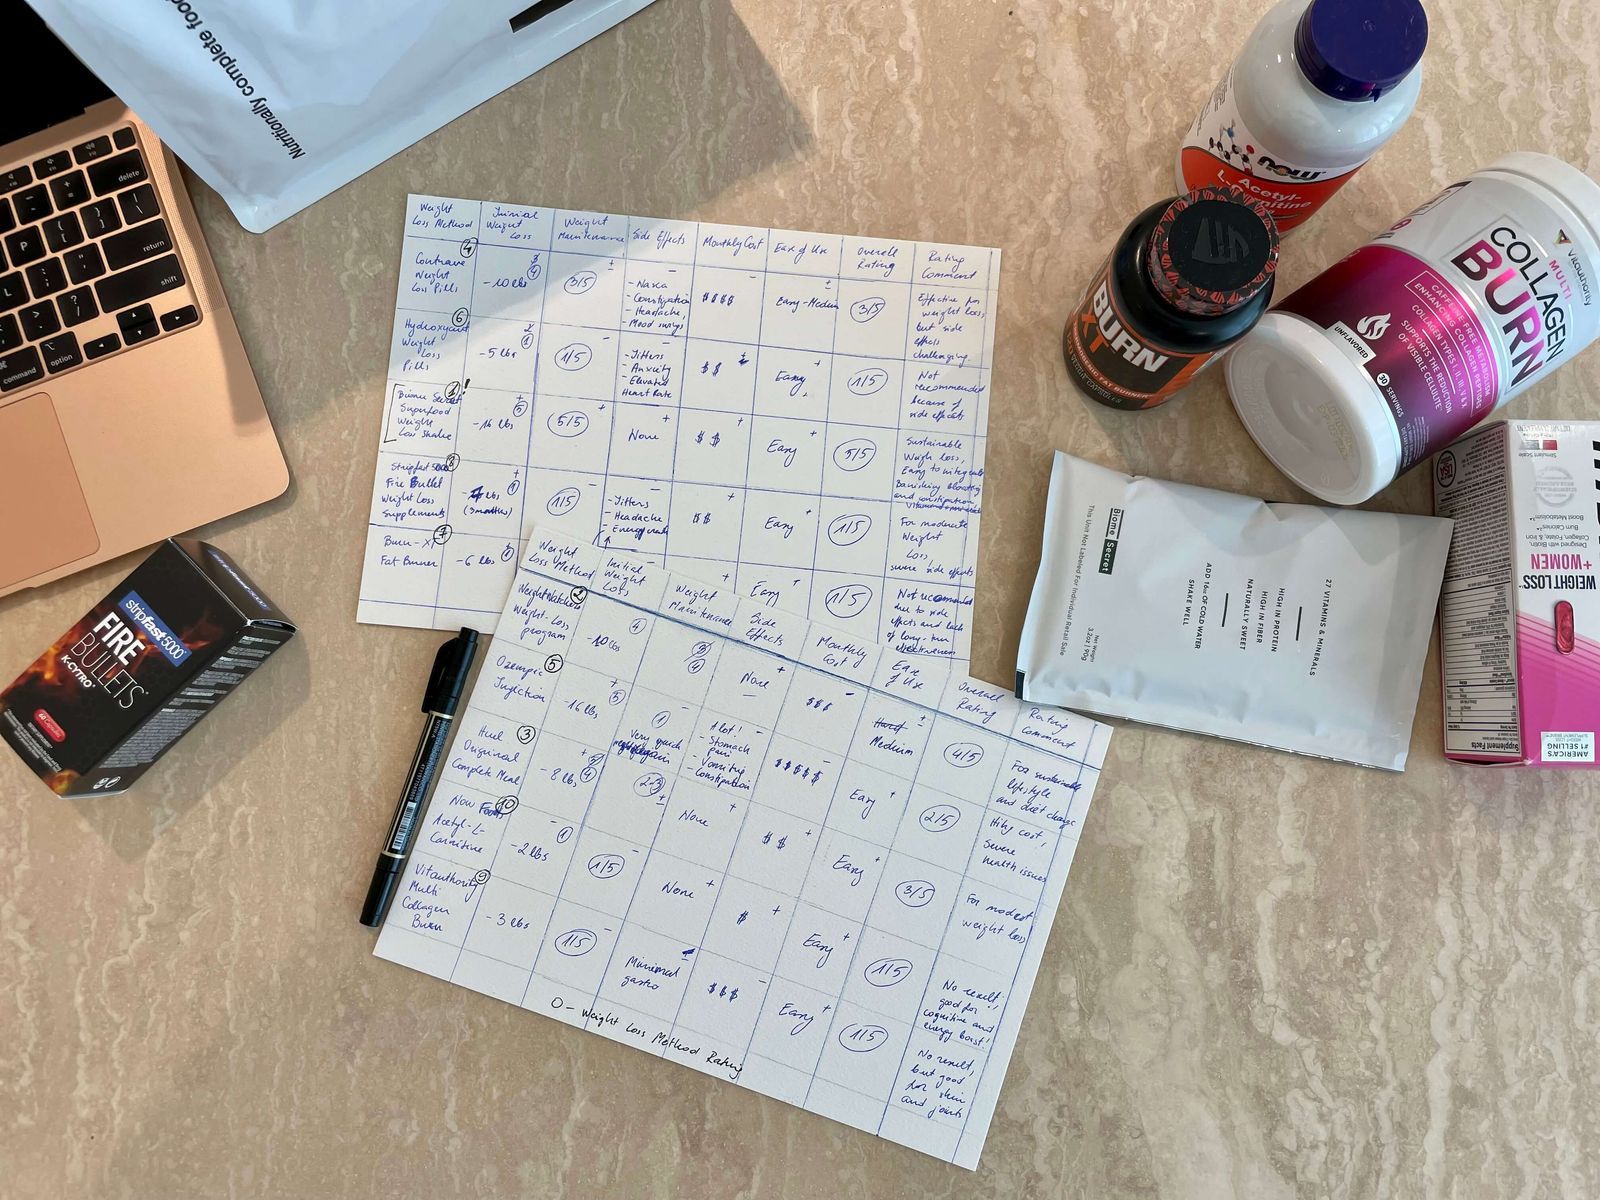 Nutritionally complete food
delete
return
shift
P
L
option
command
command
option
Weight
Loss Method
Initial
Weight
Loss
Weight
Maintenance
Side Effects
Monthly Cost
Ease of Use
Overall
Rating
Rating
Comment
4
Contrave
Weight
Loss Pills
4
-10 lbs
±
3/5
-
- Headache,
Mood swings
-
$$$$
±
Easy-Medium
3/5
Effective for
weight loss,
but side
effects
challenging.
6
Hydroxycut
Weight
Loss
Pills
1
-5 lbs
-
1/5
-
- Jitters
- Anxiety
- Elevated
Heart Rate
$$
+
Easy
1/5
Not
recommended
because of
side effects
1!
Biome Secret
Superfood
Weight
Loss Shake
+
5
-16 lbs
+
5/5
+
None
+
$$
+
Easy
5/5
Sustainable
Weigh loss,
Easy to integrate
Banishing bloating
and constipation
8
Stripfast 5000
Fire Bullet
Weight Loss
Supplements
+
1
lbs
(3 months)
-
1/5
-
- Jitters
- Headache
+
$$
+
Easy
1/5
For moderate
Weight
Loss
severe side effects
7
Burn-XT
Fat Burner
1
-6 lbs
+
Easy
1/5
Not recommended
due to side
effects and lack
of long-term
effectiveness
Weight
Loss Method
Initial
Weight
Loss
Weight
Maintenance
Side
Effects
Monthly
Cost
Ease
of Use
Overall
Rating
Rating
Comment
2
WeightWatchers
Weight-Loss
program
4
-10 lbs
4
+
None
-
$$$
±
Medium
4/5
For sustainable
lifestyle
and diet change
5
Ozempic
Injection
+
5
-16 lbs
1
-
Very quick
-
A lot!
- Stomach
pain
- Vomiting
- Constipation
-
$$$$$
+
Easy
2/5
High cost,
Severe
health issues
3
Huel
Original
Complete Meal
+
4
-8 lbs
2-3
±
+
None
+
$$
+
Easy
3/5
For modest
weight loss
10
Now Foods
Acetyl-L-
Carnitine
-
1
-2 lbs
-
1/5
+
None
+
$
+
Easy
1/5
No result!
good for
cognitive and
energy boost!
9
Vitauthority
Multi
Collagen
Burn
-3 lbs
-
1/5
Minimal
gastro
-
$$$
+
Easy
1/5
No result,
but good
for skin
and joints
O - Weight Loss Method Rating
stripfast5000
FIRE
BULLETS
K-CYTRO
60 Capsules
now
L-Acetyl-
BURN
XT
THERMOGENIC FAT BURNER
Vitauthority
MULTI
COLLAGEN
BURN
CAFFEINE-FREE METABOLISM
ENHANCING COLLAGEN PEPTIDES
COLLAGEN TYPES I, II, III, V & X
SUPPORTS THE REDUCTION
OF VISIBLE CELLULITE
UNFLAVORED
30 SERVINGS
Biome Secret
This Unit Not Labeled For Individual Retail Sale
Net Weight
3.2oz | 90g
ADD 16oz OF COLD WATER
SHAKE WELL
HIGH IN PROTEIN
HIGH IN FIBER
NATURALLY SWEET
27 VITAMINS & MINERALS
Stimulant Scale
Boost Metabolism
Burn Calories
Collagen, Folate, & Iron
Designed with Biotin,
+WOMEN
WEIGHT LOSS
Supplement Facts
AMERICA'S
#1 SELLING